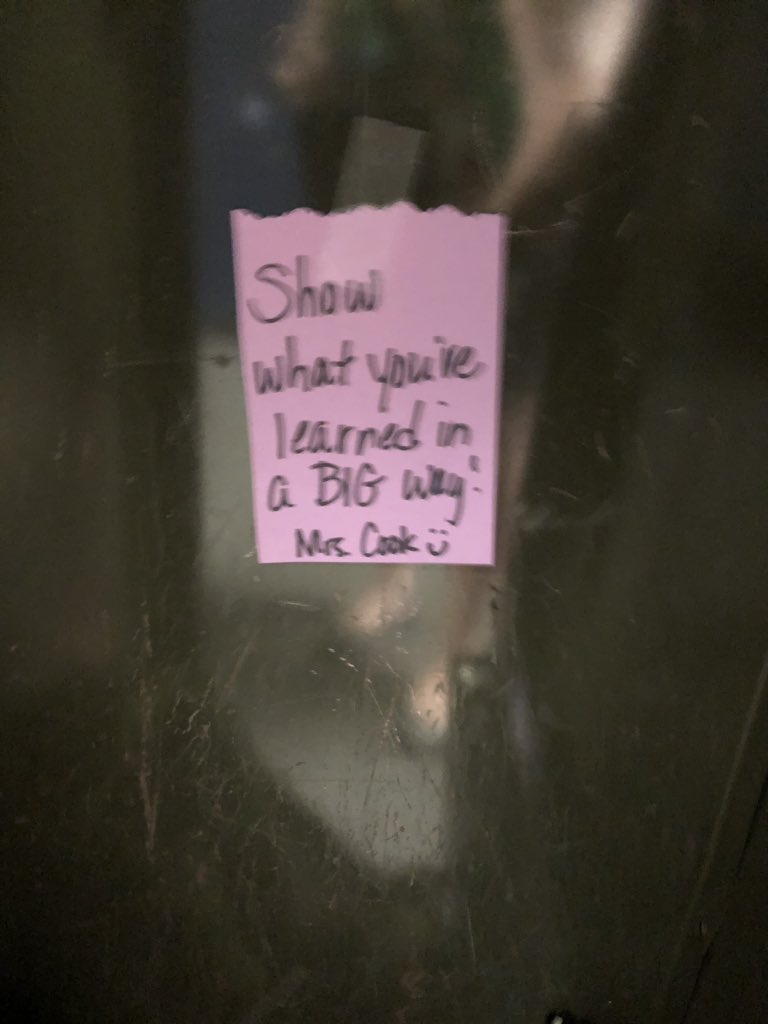 Show
what you've
learned in
a BIG way!
Mrs. Cook :)